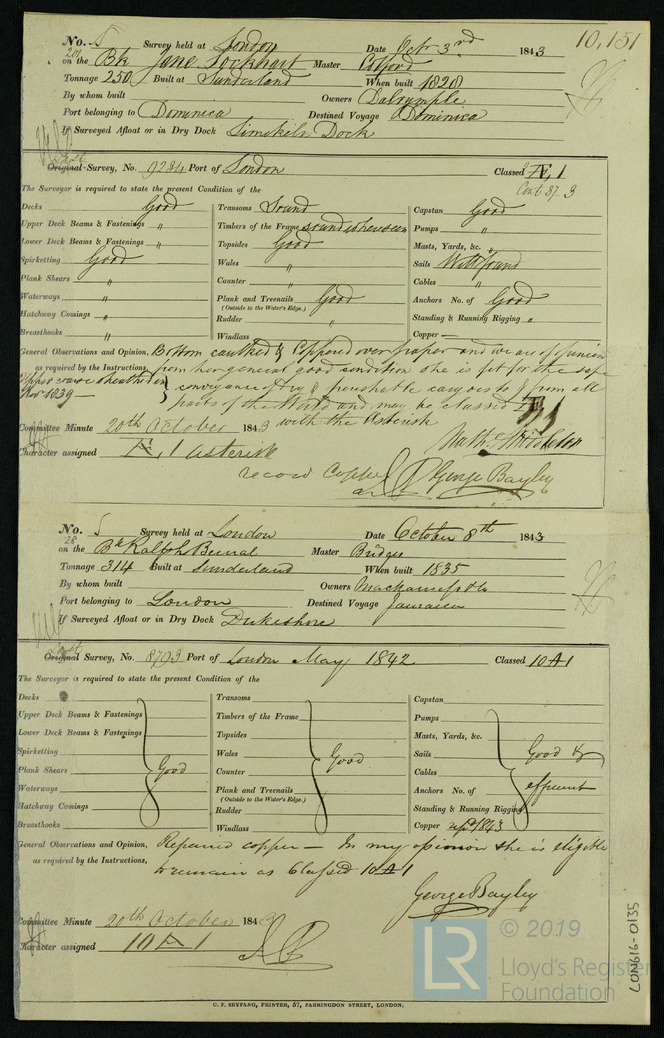 10,151
No. 5 Survey held at London Date Octr 3rd 1843
on the Bk Jane Lockhart Master
Tonnage 250 Built at Sunderland When built 1828
By whom built Owners Dalrymple
Port belonging to Dominica Destined Voyage Dominica
If Surveyed Afloat or in Dry Dock Limekiln Dock
Last
Original Survey, No. 9284 Port of London Classed Æ, 1
Cont 37. 3
The Surveyor is required to state the present Condition of the
Decks Good Transoms Sound Capstan Good
Upper Deck Beams & Fastenings " Timbers of the Frame sound where seen Pumps "
Lower Deck Beams & Fastenings " Topsides Good Masts, Yards, &c. "
Spirketting Good Wales " Sails Well found
Plank Shears " Counter " Cables "
Waterways " Plank and Treenails Good Anchors No. of Good
(Outside to the Water's Edge.)
Hatchway Comings " Rudder " Standing & Running Rigging "
Breasthooks " Windlass Copper —
General Observations and Opinion, Bottom caulked & Coppered over paper and we are of opinion
as required by the Instructions, from her general good condition she is fit for the safe
conveyance of dry & perishable cargoes to & from all
Novr 1839 —
parts of the World and may be classed Æ 1
with the Asterisk
Committee Minute 20th October 1843
Nathl Middleton
Character assigned Æ, 1 asterisk
record Copper George Bayley
No. 5 Survey held at London Date October 8th 1843
28
on the Bk Ralph Bernal Master Bridges
Tonnage 314 Built at Sunderland When built 1835
By whom built Owners
Port belonging to London Destined Voyage Jamaica
If Surveyed Afloat or in Dry Dock Dukeshore
Last
Original Survey, No. 8793 Port of London May 1842 Classed 10 A 1
The Surveyor is required to state the present Condition of the
Decks Transoms Capstan
Upper Deck Beams & Fastenings Timbers of the Frame Pumps
Lower Deck Beams & Fastenings Topsides Masts, Yards, &c.
Spirketting Wales Good Sails Good &
Plank Shears Good Counter Cables
Waterways Plank and Treenails Anchors No. of efficient
(Outside to the Water's Edge.)
Hatchway Comings Rudder Standing & Running Rigging
Breasthooks Windlass Copper 1843
General Observations and Opinion, Repaired copper — In my opinion she is eligible
as required by the Instructions, to remain as Classed 10 A 1
George Bayley
Committee Minute 20th October 1843
Character assigned 10 A 1
C. F. SEYFANG, PRINTER, 57, FARRINGDON STREET, LONDON.
LON616-0135
LR © 2019
Lloyd's Register
Foundation